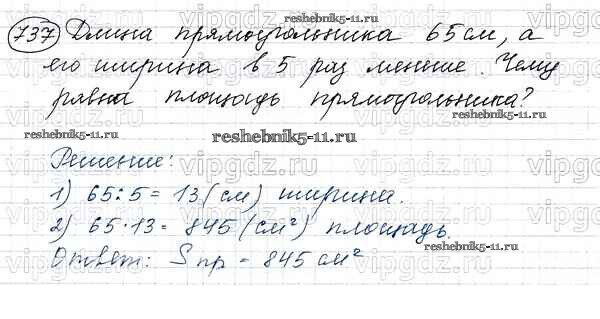 reshebnik5-11.ru
737 Длина прямоугольника 65 см, а
его ширина в 5 раз меньше. Чему
равна площадь прямоугольника?
reshebnik5-11.ru
reshebnik5-11.ru
reshebnik5-11.ru
Решение:
1) 65:5 = 13 (см) ширина.
2) 65·13 = 845 (см²) площадь.
reshebnik5-11.ru
Ответ: Sпр = 845 см²
vipgdz.ru